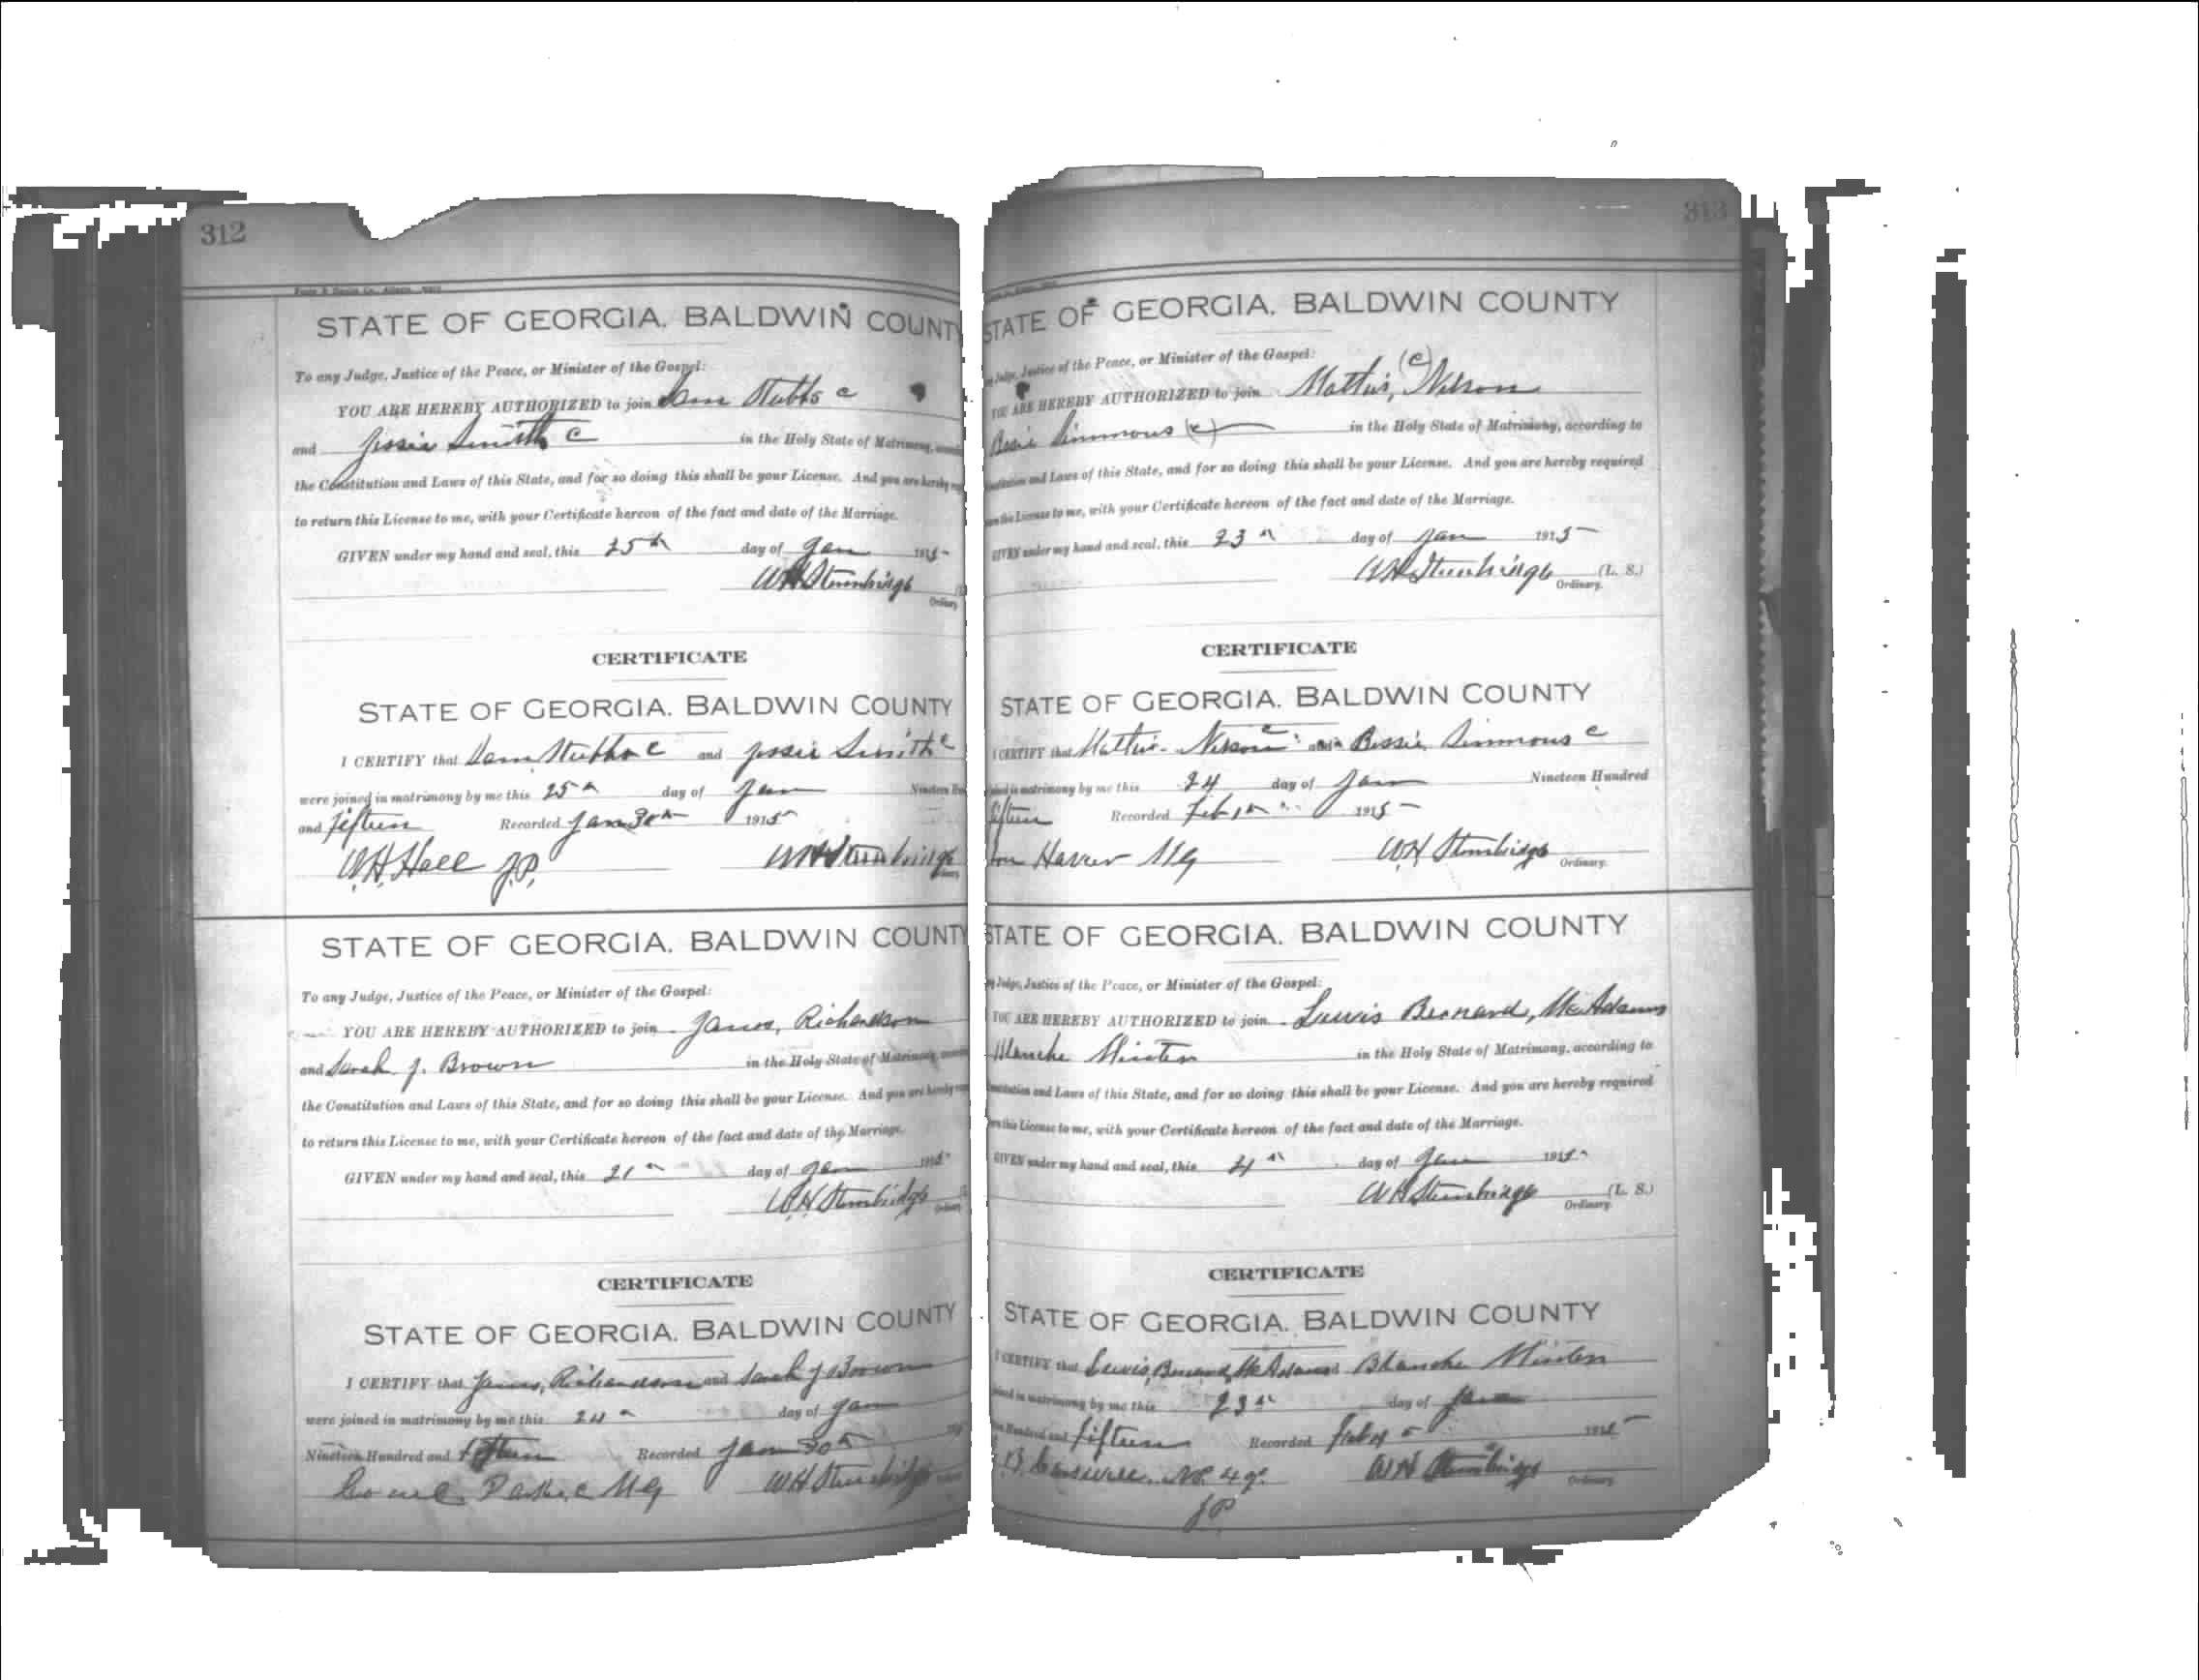 312
STATE OF GEORGIA. BALDWIN COUNTY
To any Judge, Justice of the Peace, or Minister of the Gospel:
YOU ARE HEREBY AUTHORIZED to join Sam Stubbs c
and Jossie Smith c in the Holy State of Matrimony,
the Constitution and Laws of this State, and for so doing this shall be your License. And you are hereby
to return this License to me, with your Certificate hereon of the fact and date of the Marriage.
GIVEN under my hand and seal, this 25th day of Jan 1915
WH Stembridge
Ordinary
CERTIFICATE
STATE OF GEORGIA. BALDWIN COUNTY
I CERTIFY that Sam Stubbs c and Jossie Smith c
were joined in matrimony by me this 25th day of Jan Nineteen
and fifteen Recorded Jan 30th 1915
W.H. Hall J.P. WH Stembridge
STATE OF GEORGIA. BALDWIN COUNTY
To any Judge, Justice of the Peace, or Minister of the Gospel:
YOU ARE HEREBY AUTHORIZED to join James, Richardson
and Sarah J. Brown in the Holy State of Matrimony,
the Constitution and Laws of this State, and for so doing this shall be your License. And you are hereby
to return this License to me, with your Certificate hereon of the fact and date of the Marriage.
GIVEN under my hand and seal, this 21th day of Jan 1915
W.H Stembridge
CERTIFICATE
STATE OF GEORGIA. BALDWIN COUNTY
I CERTIFY that James, Richardson and Sarah J Brown
were joined in matrimony by me this 24th day of Jan
Nineteen Hundred and fifteen Recorded Jan 30th
MG WH Stembridge
313
STATE OF GEORGIA. BALDWIN COUNTY
Judge, Justice of the Peace, or Minister of the Gospel:
YOU ARE HEREBY AUTHORIZED to join Mattie, (c) Nelson
Bessie Simmons (c) in the Holy State of Matrimony, according to
and Laws of this State, and for so doing this shall be your License. And you are hereby required
this License to me, with your Certificate hereon of the fact and date of the Marriage.
GIVEN under my hand and seal, this 23th day of Jan 1915
WH Stembridge (L. S.)
Ordinary.
CERTIFICATE
STATE OF GEORGIA. BALDWIN COUNTY
I CERTIFY that Mattie Nelson c and Bessie Simmons c
in matrimony by me this 24 day of Jan Nineteen Hundred
fifteen Recorded Feb 1st 1915
MG WH Stembridge
Ordinary.
STATE OF GEORGIA. BALDWIN COUNTY
Judge, Justice of the Peace, or Minister of the Gospel:
YOU ARE HEREBY AUTHORIZED to join Lewis Bernard, McAdams
Blanche in the Holy State of Matrimony, according to
and Laws of this State, and for so doing this shall be your License. And you are hereby required
this License to me, with your Certificate hereon of the fact and date of the Marriage.
GIVEN under my hand and seal, this day of Jan 1915
WH Stembridge (L. S.)
Ordinary.
CERTIFICATE
STATE OF GEORGIA. BALDWIN COUNTY
I CERTIFY that Lewis, Bernard, McAdams Blanche
in matrimony by me this 23th day of Jan
Hundred and fifteen Recorded Feb 1915
WH Stembridge
Ordinary.
JP